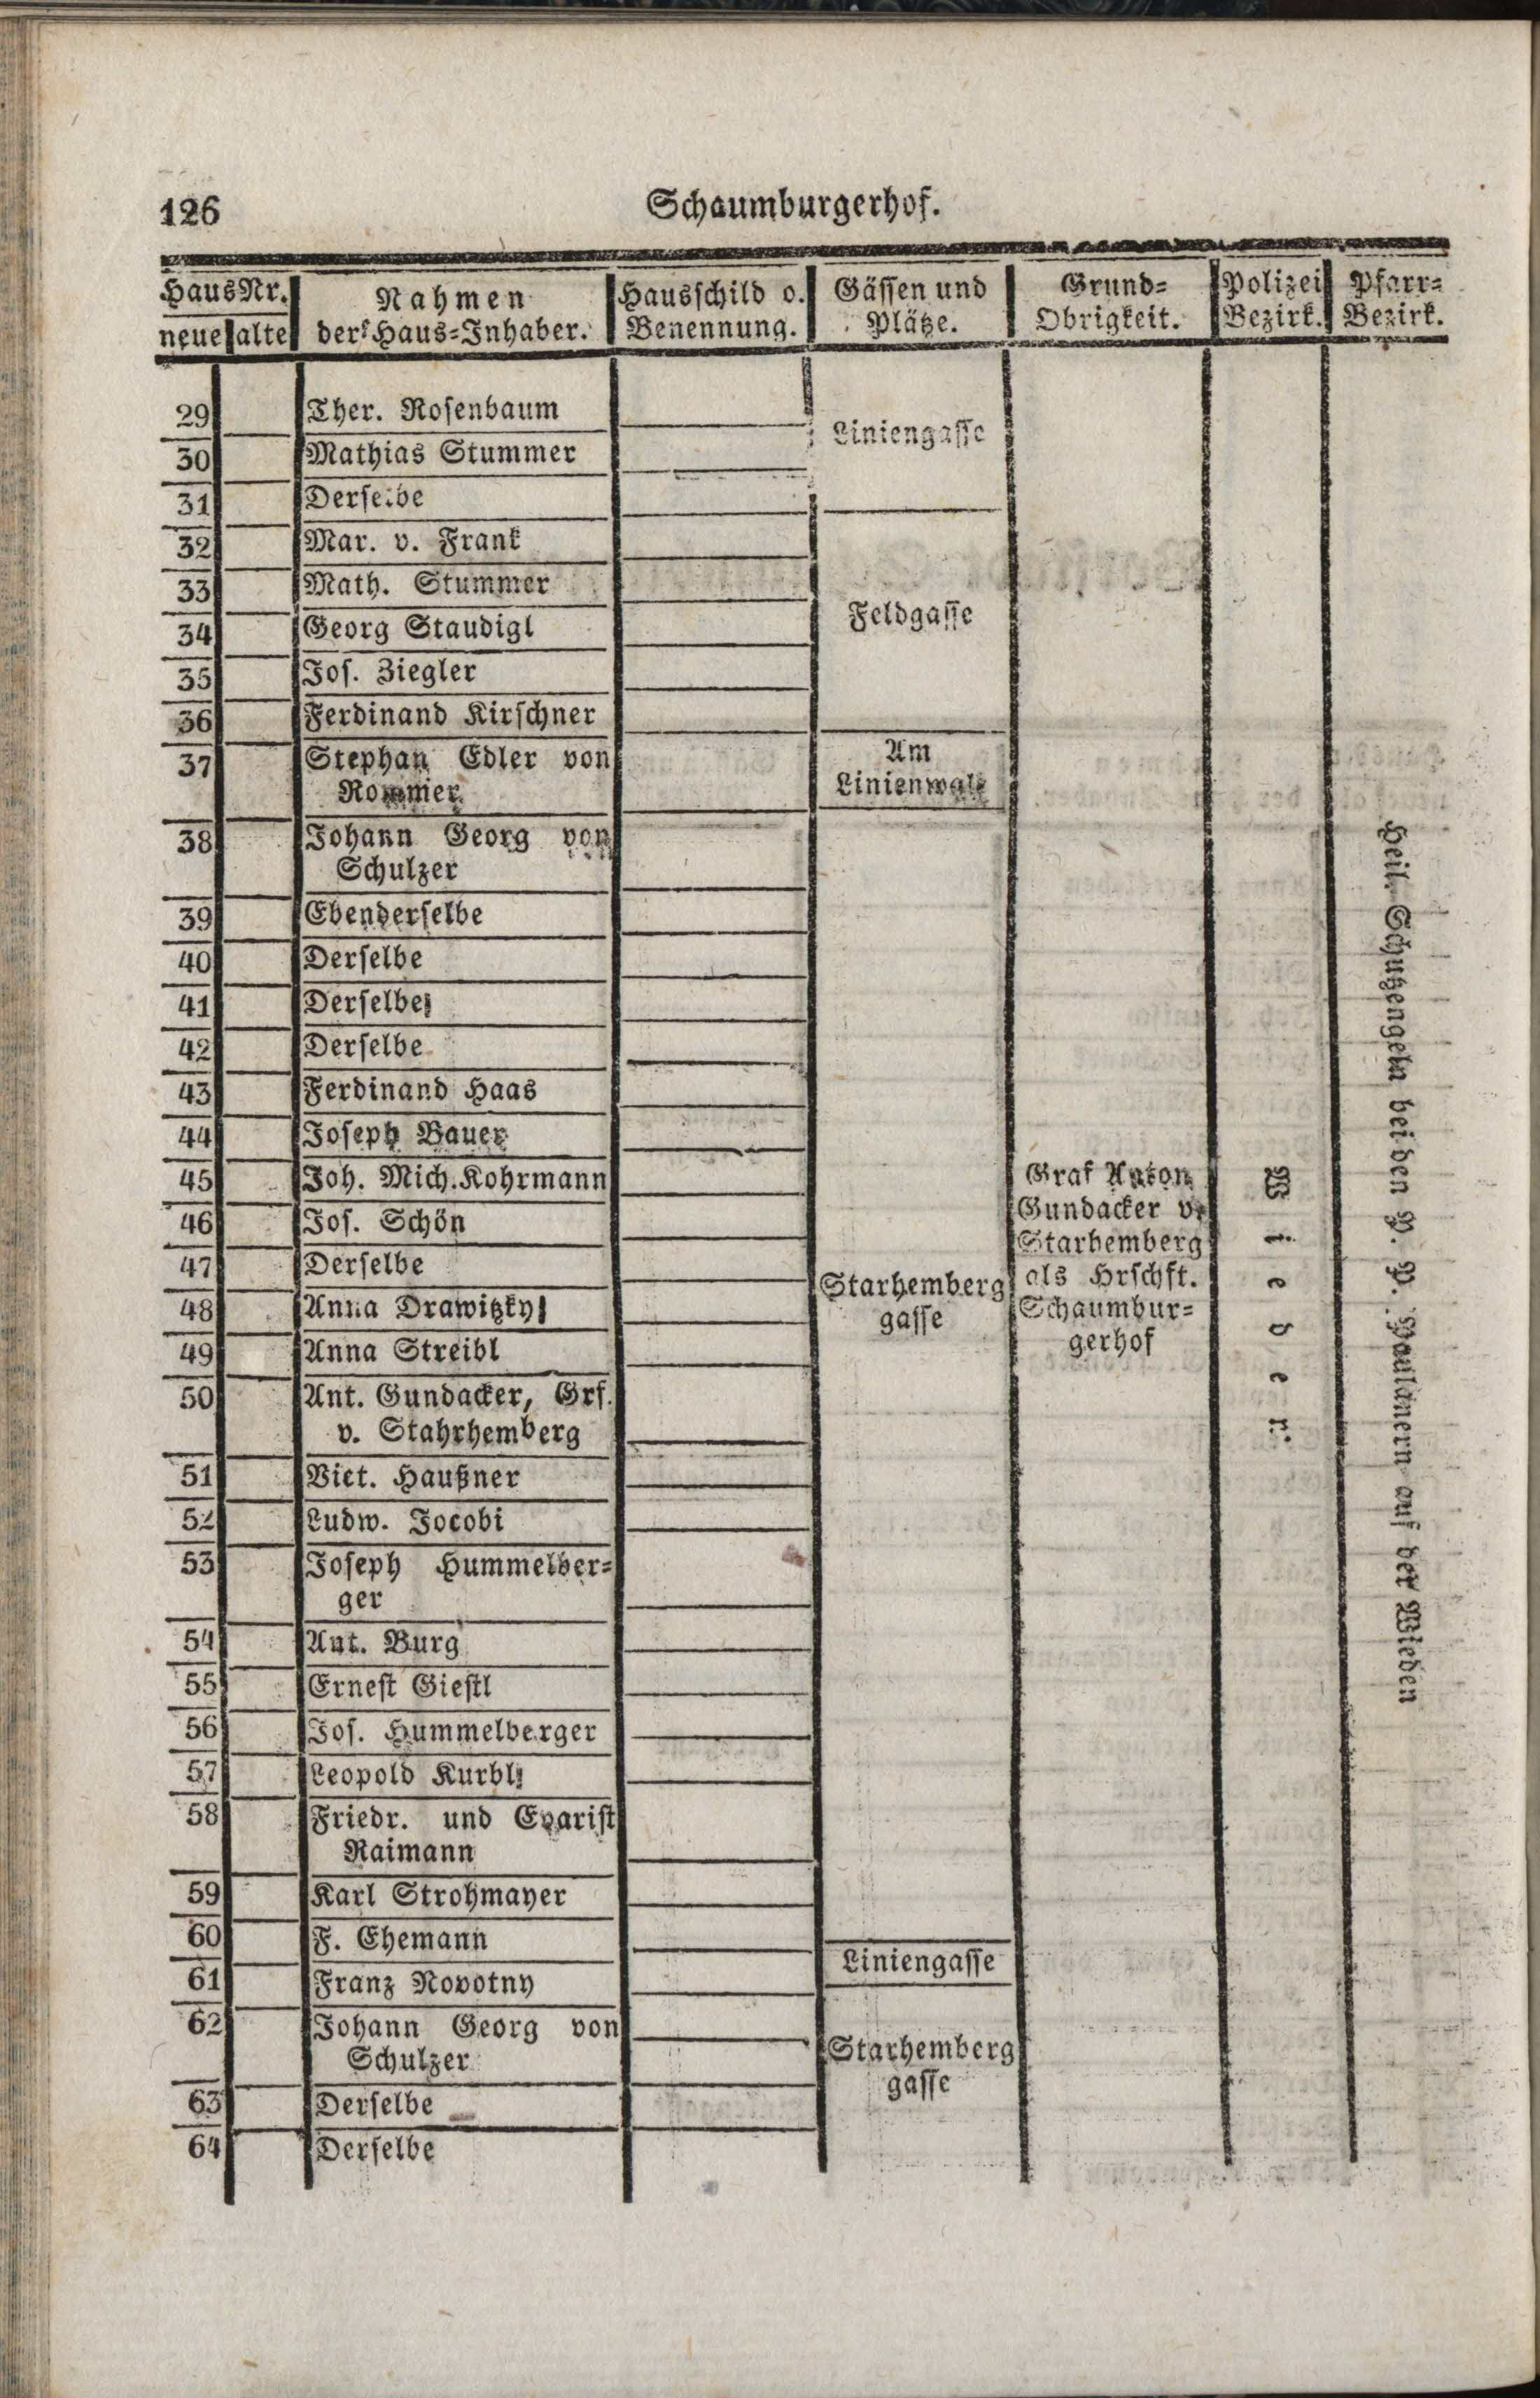 126
Schaumburgerhof.
Haus Nr.
neue alte
Nahmen
der Haus-Inhaber.
Hausschild o.
Benennung.
Gässen und
Plätze.
Grund-
Obrigkeit.
Polizei
Bezirk.
Pfarr-
Bezirk.
29 Ther. Rosenbaum
Liniengasse
30 Mathias Stummer
31 Derselbe
32 Mar. v. Frank
33 Math. Stummer
Feldgasse
34 Georg Staudigl
35 Jos. Ziegler
36 Ferdinand Kirschner
37 Stephan Edler von
Rommer
Am
Linienwall
38 Johann Georg von
Schulzer
39 Ebenderselbe
40 Derselbe
41 Derselbe
42 Derselbe
43 Ferdinand Haas
44 Joseph Bauer
45 Joh. Mich. Kohrmann
46 Jos. Schön
47 Derselbe
48 Anna Drawitzky
49 Anna Streibl
50 Ant. Gundacker, Grf.
v. Stahrhemberg
51 Vict. Haußner
52 Ludw. Jocobi
53 Joseph Hummelber-
ger
54 Ant. Burg
55 Ernest Giestl
56 Jos. Hummelberger
57 Leopold Kurbl
58 Friedr. und Evarist
Raimann
59 Karl Strohmayer
60 F. Ehemann
Starhemberg
gasse
61 Franz Novotny
Liniengasse
62 Johann Georg von
Schulzer
63 Derselbe
64 Derselbe
Starhemberg
gasse
Graf Anton
Gundacker v.
Starhemberg
als Hrschft.
Schaumbur-
gerhof
Wieden.
Heil. Schutzengeln bei den P. P. Paulanern auf der Wieden